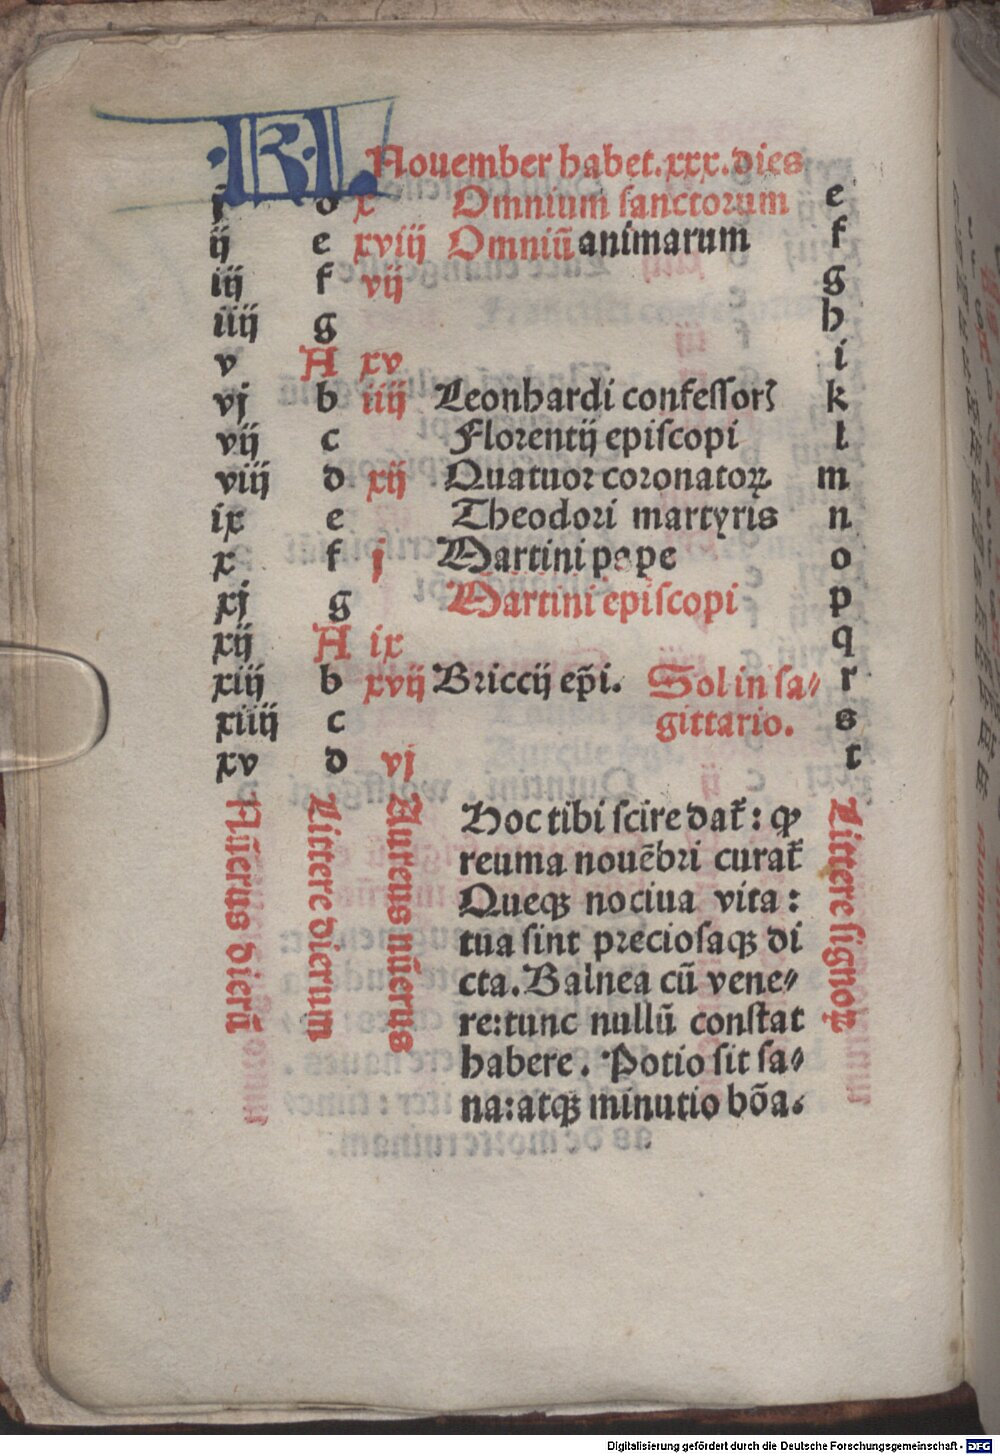 KL Nouember habet.xxx.dies
j d x Omnium sanctorum e
ij e xviij Omniū animarum f
iij f vij g
iiij g h
v A xv i
vj b iiij Leonhardi confessorꝭ k
vij c Florentij episcopi l
viij d xij Quatuor coronatoꝝ m
ix e Theodori martyris n
x f j Martini pape o
xj g Martini episcopi p
xij A ix q
xiij b xvij Briccij ep̄i. Sol in sa⸗ r
xiiij c gittario. s
xv d vj t
Nūerus dierū
Littere dierum
Aureus nūerus
Hoc tibi scire dat᷑: ꝙ
reuma nouēbri curat᷑
Queqꝫ nociua vita:
tua sint preciosaqꝫ di
cta. Balnea cū vene⸗
re: tunc nullū constat
habere. Potio sit sa⸗
na: atqꝫ minutio bōa.
Littere signoꝝ
Digitalisierung gefördert durch die Deutsche Forschungsgemeinschaft - DFG